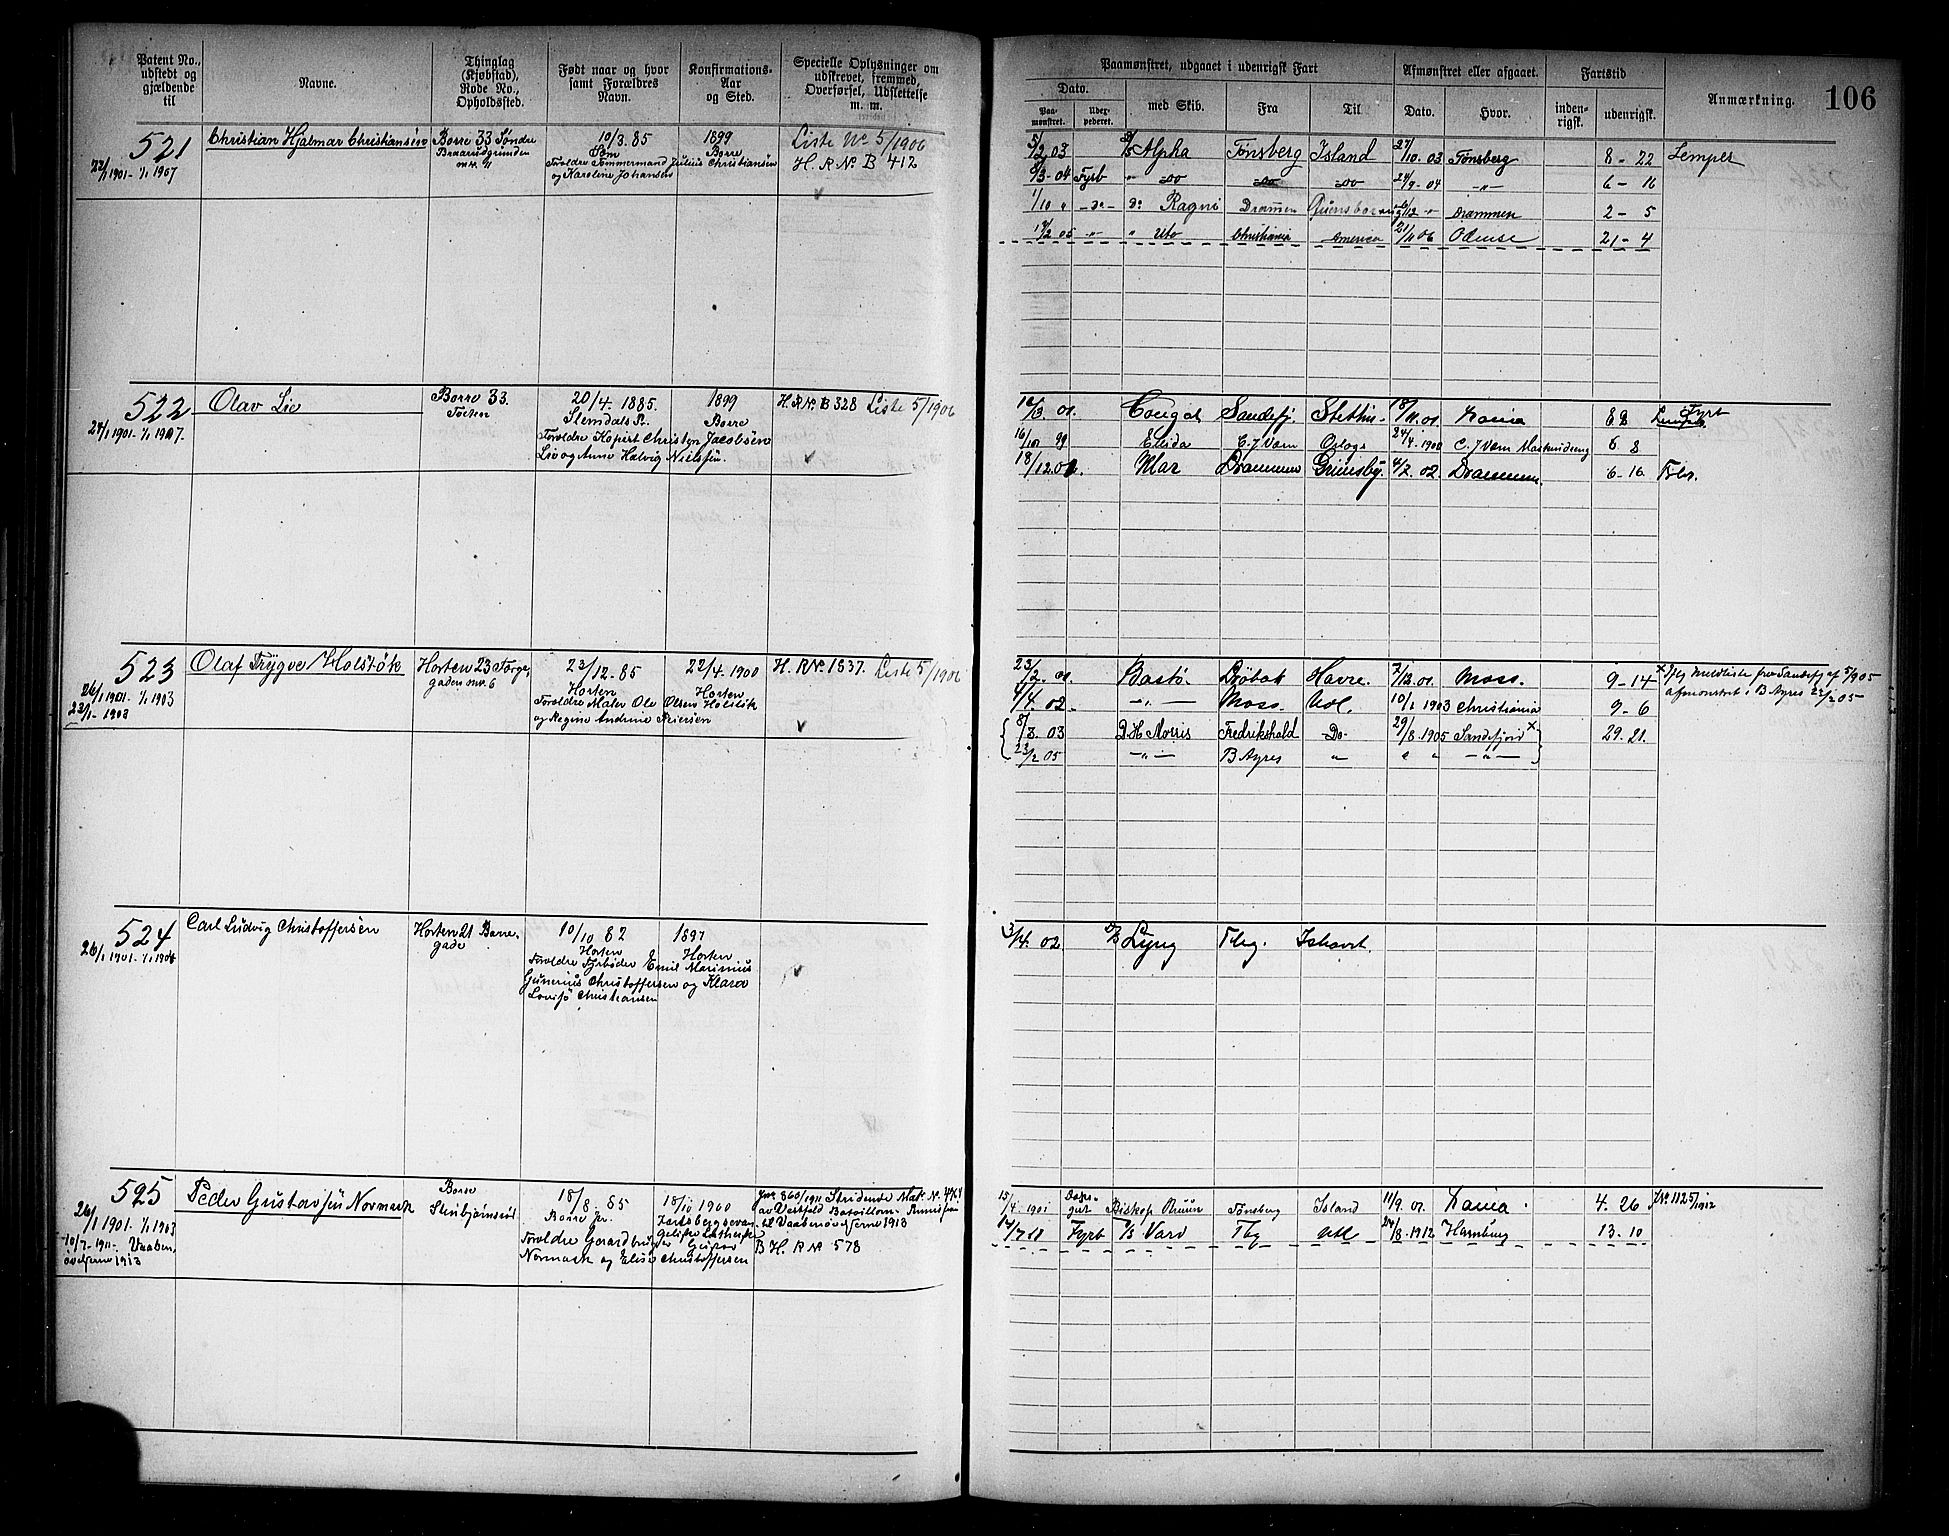 Patent No., udstedt og gjældende til
Navne.
Thinglag (Kjøbstad), Rode No., Opholdssted.
Født naar og hvor samt Forældres Navn.
Konfirmations-Aar og Sted.
Specielle Oplysninger om udskrevet, fremmed, Overførsel, Udslettelse m. m.
Paamønstret, udgaaet i udenrigsk Fart
Afmønstret eller afgaaet.
Fartstid
Anmærkning.
106
Dato.
Paa-mønstret.
med Skib.
Fra
Til
Dato.
Hvor.
inden-rigsk.
udenrigsk.
521
22/1 1901 - 1/1 1907
Christian Hjalmar Christiansen
Borre 33 Søndre
Braarudgrunden
10/3. 85
Forældre Tømmermand Julius Christiansen
og Karoline Johansen
1899
Borre
Liste No 5/1906
H. R No B 412
5/2 03 Alpha Tønsberg Island 27/10 03 Tønsberg 8 - 22 Lemper
9/3-04 Fyrb " do do do 24/9-04 -"- 6 - 16
1/10 " -do- Do Ragni Drammen Drammen 2 - 5
05 -"- " Uto Christiania America 21/11 06 Odense 21 - 4
522
24/1 1901 - 1/1 1907.
Olav Lie
Borre 33.
20/4. 1885.
Forældre Christen Jacobsen
Lie og Anne Helvig Nielsen.
1899
Borre
H. R No B 328 Liste 5/1906
Sandefj. Stettin. 8 8 Fyrb
16/10 99 Elida 24/4-1900 6 8
18/12.01. Mar Drammen Grimsby. 4/2. 02. Drammen. 6-16
523
26/1 1901 - 1/1 1903
23/1 - 1903
Olaf Trygve Holstøk
Horten 23 Torge-
gaden no. 6
23/12-85
Horten
Forældre Maler Ole Olsen Holstøk
og Regine Andrine Reiersen
22/4-1900
Horten
H. R No. 1837. Liste 5/1906
23/2. 01. Bastø. Drøbak Havre. 7/12.01. Moss. 9-14
4/4. 02. -"- Moss. Udl. 10/1 1903 Christiania 9-6
8/3. 03 Morris Fredrikshald Do- 29/8-1905 Sandefjord x 29. 21.
23/2 05 -"- B Ayres " " " -"-
afmønstret i B Ayres 22/2 05
524
26/1 1901. - 1/1 1904
Carl Ludvig Christoffersen
Horten 21 Borre-
gade
10/10 82
Horten
Forældre Fyrbøder Emil Marinius
Gunerius Christoffersen og Klara
Lovise Christiansen
1897
Horten
3/4. 02 Lyng Tbg. Ishavet.
525
26/1 1901. 1/1 1903
10/7-1911- Vaaben-
øvelserne 1913
Peder Gustavsen Normark
Borre
18/8. 85
Borre
Forældre Gaardbruger Gustav
Normark og Elise Christoffersen
18/10 1900
Jnr 860/1911
av Vestfold Bataillon.
til Vaabenøvelserne 1913
B H. R No 578
15/4 1901 Biskop Tønsberg Island 11/9. 01. 4. 26 J.No 1125/1912
Fyrb Vard Tbg Udl 24/8-1912 Hamburg 13-10